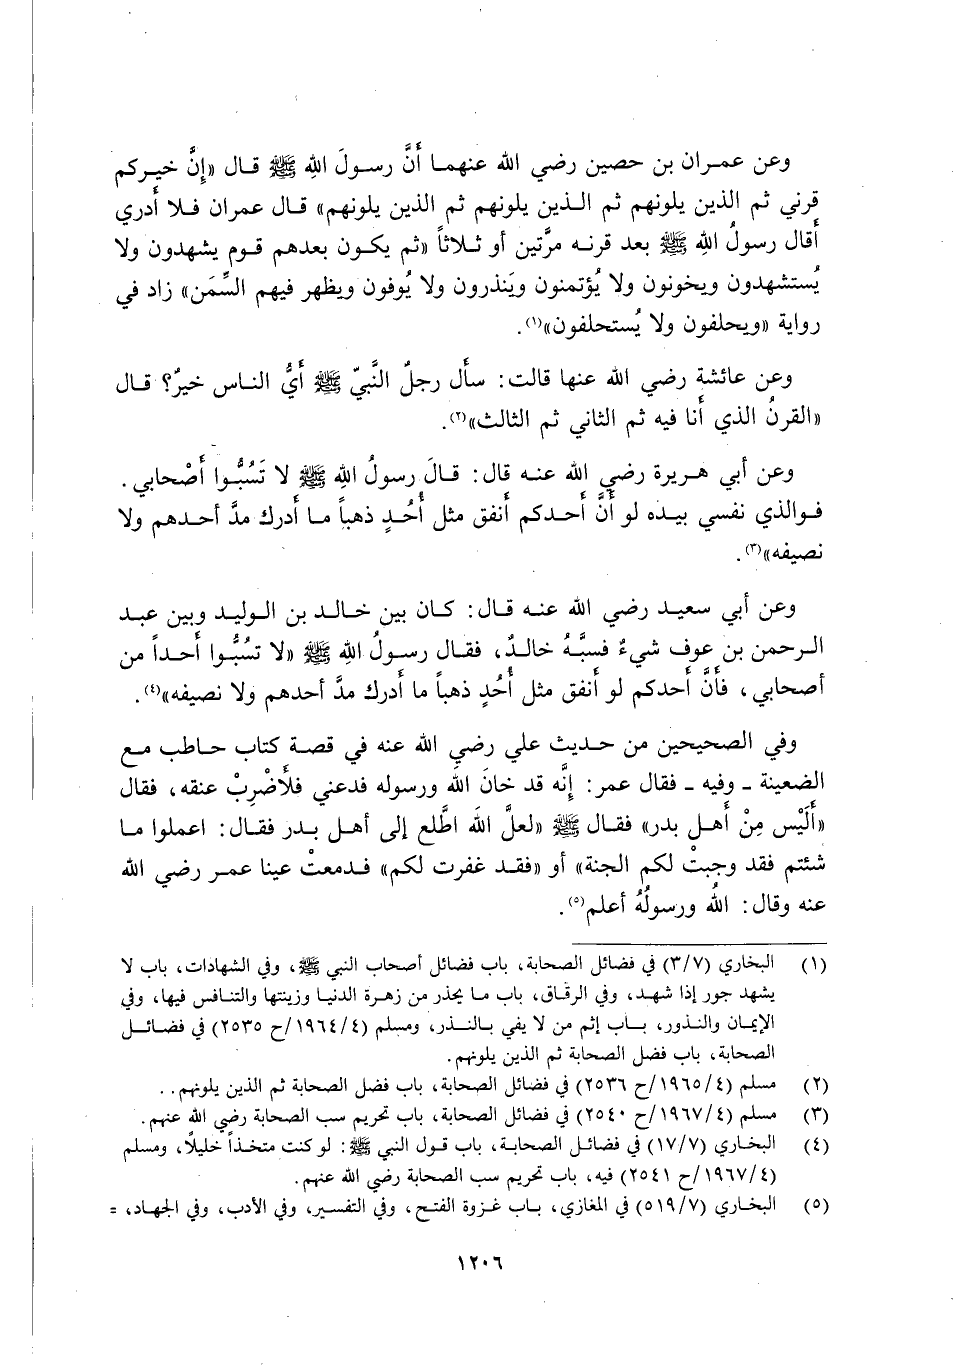 وعن عمـران بن حصين رضي الله عنهمـا أَنَّ رسـولَ اللهِ ﷺ قـال «إِنَّ خيـركم
قرني ثم الذين يلونهم ثم الـذين يلونهم ثم الذين يلونهم» قـال عمران فـلا أَدري
أَقال رسولُ اللهِ ﷺ بعد قرنـه مرَّتين أو ثـلاثاً «ثم يكـون بعدهم قـوم يشهدون ولا
يُستشهدون ويخونون ولا يُؤتمنون ويَنذرون ولا يُوفون ويظهر فيهم السِّمَن» زاد في
رواية «ويحلفون ولا يُستحلفون»(١).
وعن عائشة رضي الله عنها قالت: سأَل رجلٌ النَّبيّ ﷺ أَيُّ النـاس خيرٌ؟ قـال
«القرنُ الذي أَنا فيه ثم الثاني ثم الثالث»(٢).
وعن أبي هـريرة رضي الله عنـه قال: قـالَ رسولُ اللهِ ﷺ لا تَسُبُّـوا أَصْحابي.
فـوالذي نفسي بيـده لو أَنَّ أَحدكم أَنفق مثل أُحُـدٍ ذهباً مـا أَدرك مدَّ أحـدهم ولا
نصيفه»(٣).
وعن أبي سعيـد رضي الله عنـه قـال: كـان بين خالـد بن الـوليـد وبين عبـد
الـرحمن بن عوف شيءٌ فسبَّـهُ خالـدٌ، فقـال رسـولُ اللهِ ﷺ «لا تسُبُّـوا أَحـداً من
أصحابي، فأَنَّ أَحدكم لو أَنفق مثل أُحُدٍ ذهباً ما أَدرك مدَّ أحدهم ولا نصيفه»(٤).
وفي الصحيحين من حـديث علي رضي الله عنه في قصـة كتاب حـاطب مـع
الضعينة ـ وفيه ـ فقال عمر: إِنَّه قد خانَ الله ورسوله فدعني فلأَضْرِبْ عنقه، فقال
«أَلَيْس مِنْ أَهـل بدر» فقـال ﷺ «لعلَّ اللهَ اطَّلع إلى أهـل بـدر فقـال: اعملوا مـا
شئتم فقد وجبتْ لكم الجنة» أو «فقـد غفرت لكم» فـدمعتْ عينا عمـر رضي الله
عنه وقال: اللهُ ورسولُهُ أعلم(٥).
(١) البخاري (٣/٧) في فضائل الصحابة، باب فضائل أصحاب النبي ﷺ، وفي الشهادات، باب لا
يشهد جور إذا شهـد، وفي الرقـاق، باب مـا يحذر من زهـرة الدنيـا وزينتها والتنـافس فيها، وفي
الإيمـان والنـذور، بـاب إثم من لا يفي بـالنـذر، ومسلم (١٩٦٤/٤/ح ٢٥٣٥) في فضـائـل
الصحابة، باب فضل الصحابة ثم الذين يلونهم.
(٢) مسلم (١٩٦٥/٤/ح ٢٥٣٦) في فضائل الصحابة، باب فضل الصحابة ثم الذين يلونهم..
(٣) مسلم (١٩٦٧/٤/ح ٢٥٤٠) في فضائل الصحابة، باب تحريم سب الصحابة رضي الله عنهم.
(٤) البخـاري (١٧/٧) في فضائـل الصحابـة، باب قـول النبي ﷺ: لو كنت متخـذاً خليلًا، ومسلم
(١٩٦٧/٤/ح ٢٥٤١) فيه، باب تحريم سب الصحابة رضي الله عنهم.
(٥) البخـاري (٥١٩/٧) في المغازي، بـاب غـزوة الفتـح، وفي التفسـير، وفي الأدب، وفي الجهـاد، =
١٢٠٦